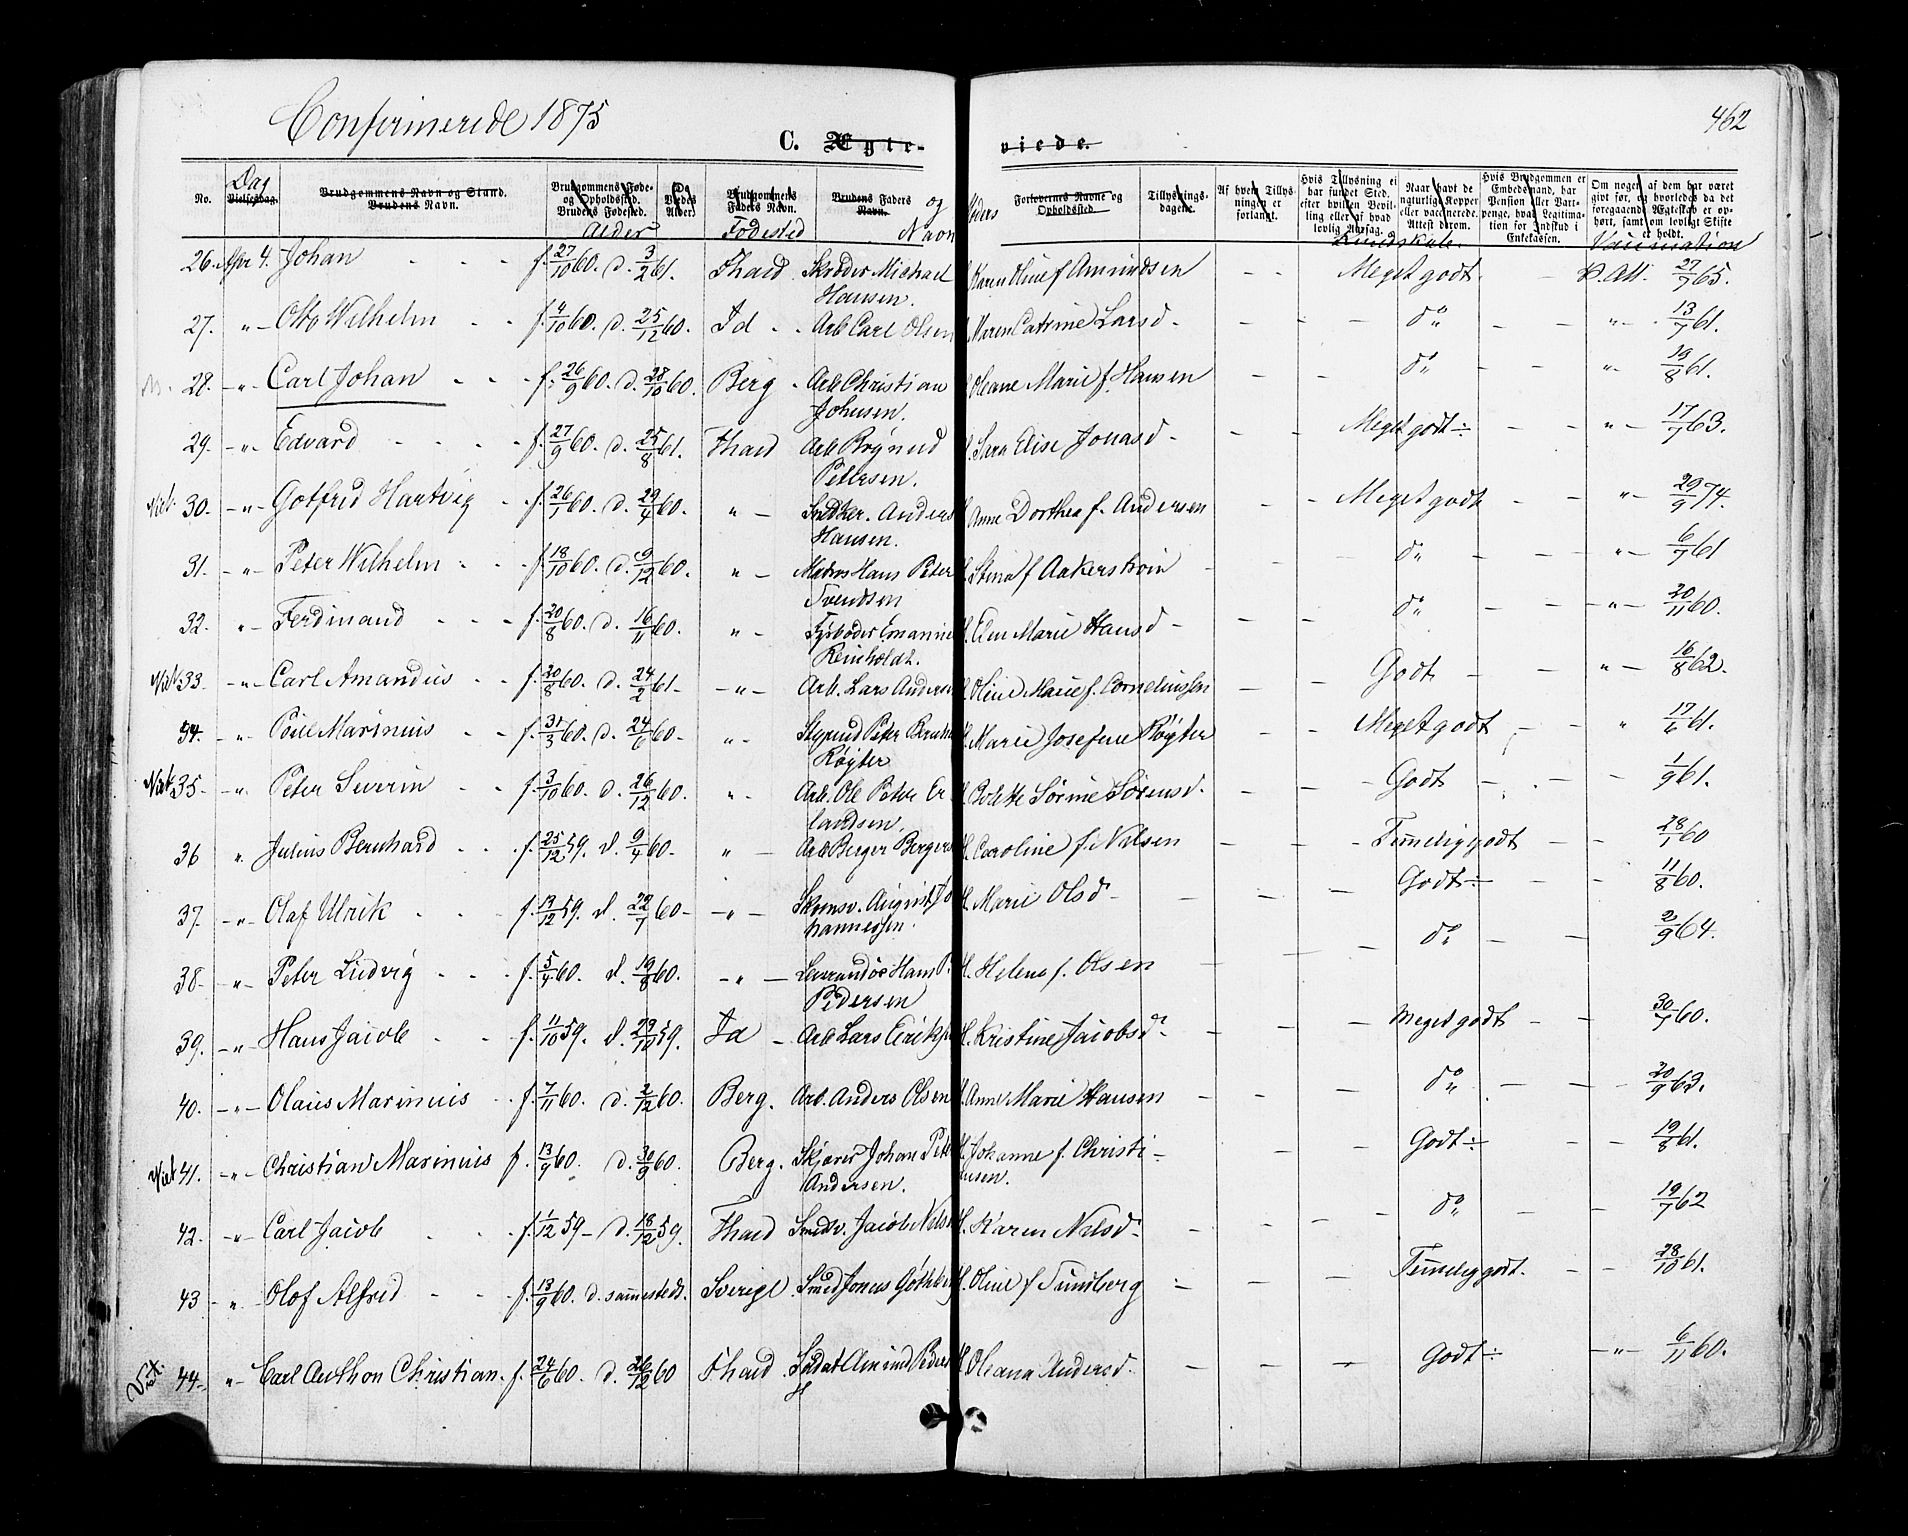 Confirmerede 1875
462
C. Ægte-
viede.
No.
Dag
Vielsesdag.
Brudgommens Navn og Stand.
Brudens Navn.
Brudgommens Føde- og Opholdssted. Brudens Fødested.
Alder
De Viedes Alder.
Brudgommens Faders Navn.
Fødested
Brudens Faders Navn.
og
Navn
Forlovernes Navne og Opholdssted.
Tillysnings-dagene.
Af hvem Tillysningen er forlangt.
Hvis Tillysning ei har fundet Sted, efter hvilken Bevilling eller af hvad lovlig Aarsag.
Kundskab.
Naar havt de naturlige Kopper eller vaccinerede. Attest derom.
Hvis Brudgommen er Embedsmand, har Pension eller Vartpenge, hvad Legitimation for Indskud i Enkekassen.
Om nogen af dem har været givt før, og hvorledes da det foregaaende Ægteskab er ophørt, samt om lovligt Skifte er holdt.
Vaccination
26. Apr 4. Johan f. 27/10 60. d. 3/2 61. Fhald Skræder Michael Hansen. Karen Oline f Amundsen Meget godt P. Att. 27/7 65.
27. " Otto Wilhelm f. 4/10 60. d. 25/12 60. Id Arb Carl Olsen Maren Catrine Larsd d° " 13/7 61.
28. " Carl Johan f. 26/9 60. d. 28/10 60. Berg Arb Christian Johnsen. Oleane Marie f. Hansen d° " 19/8 61.
29. " Edvard f. 27/9 60. d. 25/8 61. Fhald Arb Brynild Petersen. Sara Elise Jonasd Meget godt÷ " 17/7 63.
30. " Gotfred Hartvig f. 26/1 60. d. 29/4 60. " Snedker. Anders Hansen. H. Anne Dorthea f. Andersen Meget godt " 29/9 74.
31. " Peter Wilhelm f. 18/10 60. d. 9/12 60. " Hans Peter Svendsen H. Stina f Aakerstrøm d° " 6/7 61
32. " Ferdinand f. 20/8 60. d. 16/11 60. " Fyrbøder Emanuel Reinholdt. H. Elen Marie Hansd d° " 20/11 60.
33. " Carl Amandus f. 20/8 60. d. 24/2 61 " Arb. Lars Andersen H. Oline Marie f. Corneliussen Godt " 16/8 62.
34. " Poul Marinius f. 31/3 60. d. 24/6 60 " Styrmd Peter Røyter H. Marie Josefine Røyter Meget godt " 17/6 61.
35. " Peter Severin f. 3/10 60. d. 26/12 60. " Arb. Ole Peter Erlandsen. H. Bolette Sørine Sørensd. Godt 1/9 61.
36 " Julius Bernhard f. 25/12 59. d. 9/4 60 " Arb Berger Bergers H. Caroline f. Nilsen Temmelig godt 28/1 60
37. " Olaf Ulrik f. 13/12 59. d. 22/7 60 " August Johannessen. H. Marie Olsd Godt÷ 11/8 60.
38. " Peter Ludvig f. 5/4 60. d. 19/8 60. " Hans P. Pedersen H. Helene f. Olsen d° 2/9 64.
39. " Hans Jacob f. 11/10 59. d. 29/10 59. Id Arb Lars Eriksen H. Kristine Jacobsd Meget godt 30/7 60.
40. " Olaus Marinius f. 7/11 60. d. 2/12 60. Berg. Arb. Anders Olsen H. Anne Marie Hansen d° 20/9 63.
41. " Christian Marinius f. 13/9 60. d. 30/9 60. Berg. Skjærer Johan Peter Andersen. H. Johanne f. Christiansen. Godt÷ 19/8 61.
42. " Carl Jacob f. 1/12 59 d. 18/12 59. Fhald Smedsv. Jacob Nilsen H. Karen Nelsd d° 19/7 62
43 " Olof Alfred f. 13/9 60. d. sammesteds. Sverige Smed Jonas Gøthberg H. Oline f Sundberg Temmelig godt. 28/10 61.
44. " Carl Anthon Christian f. 24/6 60. d. 26/12 60 Fhald Soldat Amund Peders H. Oleana Andersd Godt÷ " 6/11 60.